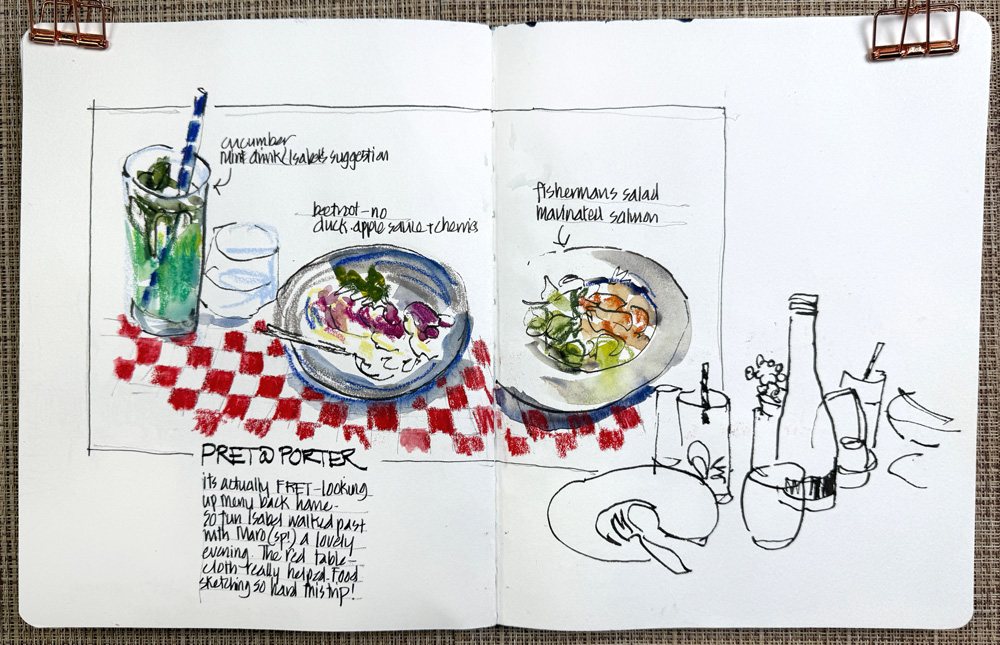 cucumber
mint drink/Isabel's suggestion
beetroot-no
duck. apple sauce + cherries
fishermans salad
marinated salmon
PRET @ PORTER
it's actually FRET-looking
up menu back home-
so fun Isabel walked past
with Maro (sp!) a lovely
evening. The red table-
cloth really helped. Food
sketching so hard this trip!